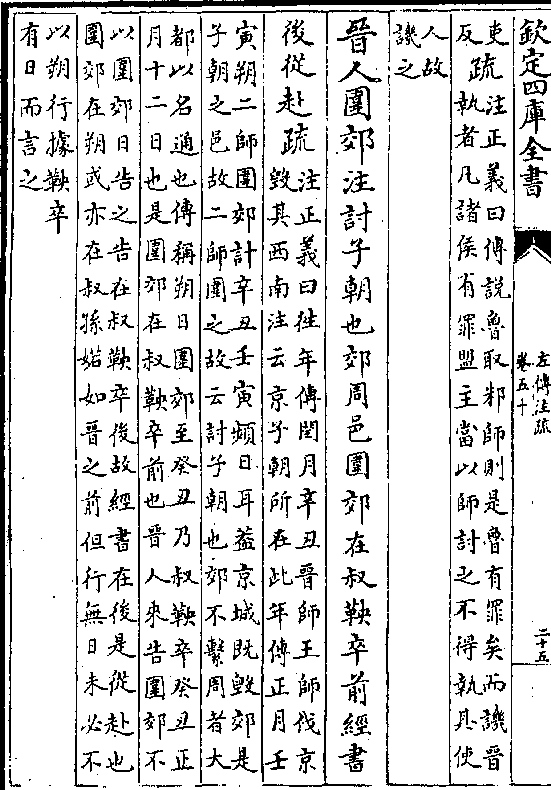 欽定四庫全書
左傳注疏
卷五十
二十五
吏
反
疏
注正義曰傳說魯取邾師則是魯有罪矣而譏晉
執者凡諸侯有罪盟主當以師討之不得執其使
人故
譏之
晉人圍郊注討子朝也郊周邑圍郊在叔鞅卒前經書
後從赴疏
注正義曰往年傳閏月辛丑晉師王師伐京
毀其西南注云京子朝所在此年傳正月壬
寅朔二師圍郊計辛丑壬寅頻日耳葢京城既毀郊是
子朝之邑故二師圍之故云討子朝也郊不繫周者大
都以名通也傳稱朔日圍郊至癸丑乃叔鞅卒癸丑正
月十二日也是圍郊在叔鞅卒前也晉人來告圍郊不
以圍郊日告之告在叔鞅卒後故經書在後是從赴也
圍郊在朔或亦在叔孫婼如晉之前但行無日未必不
以朔行據鞅卒
有日而言之